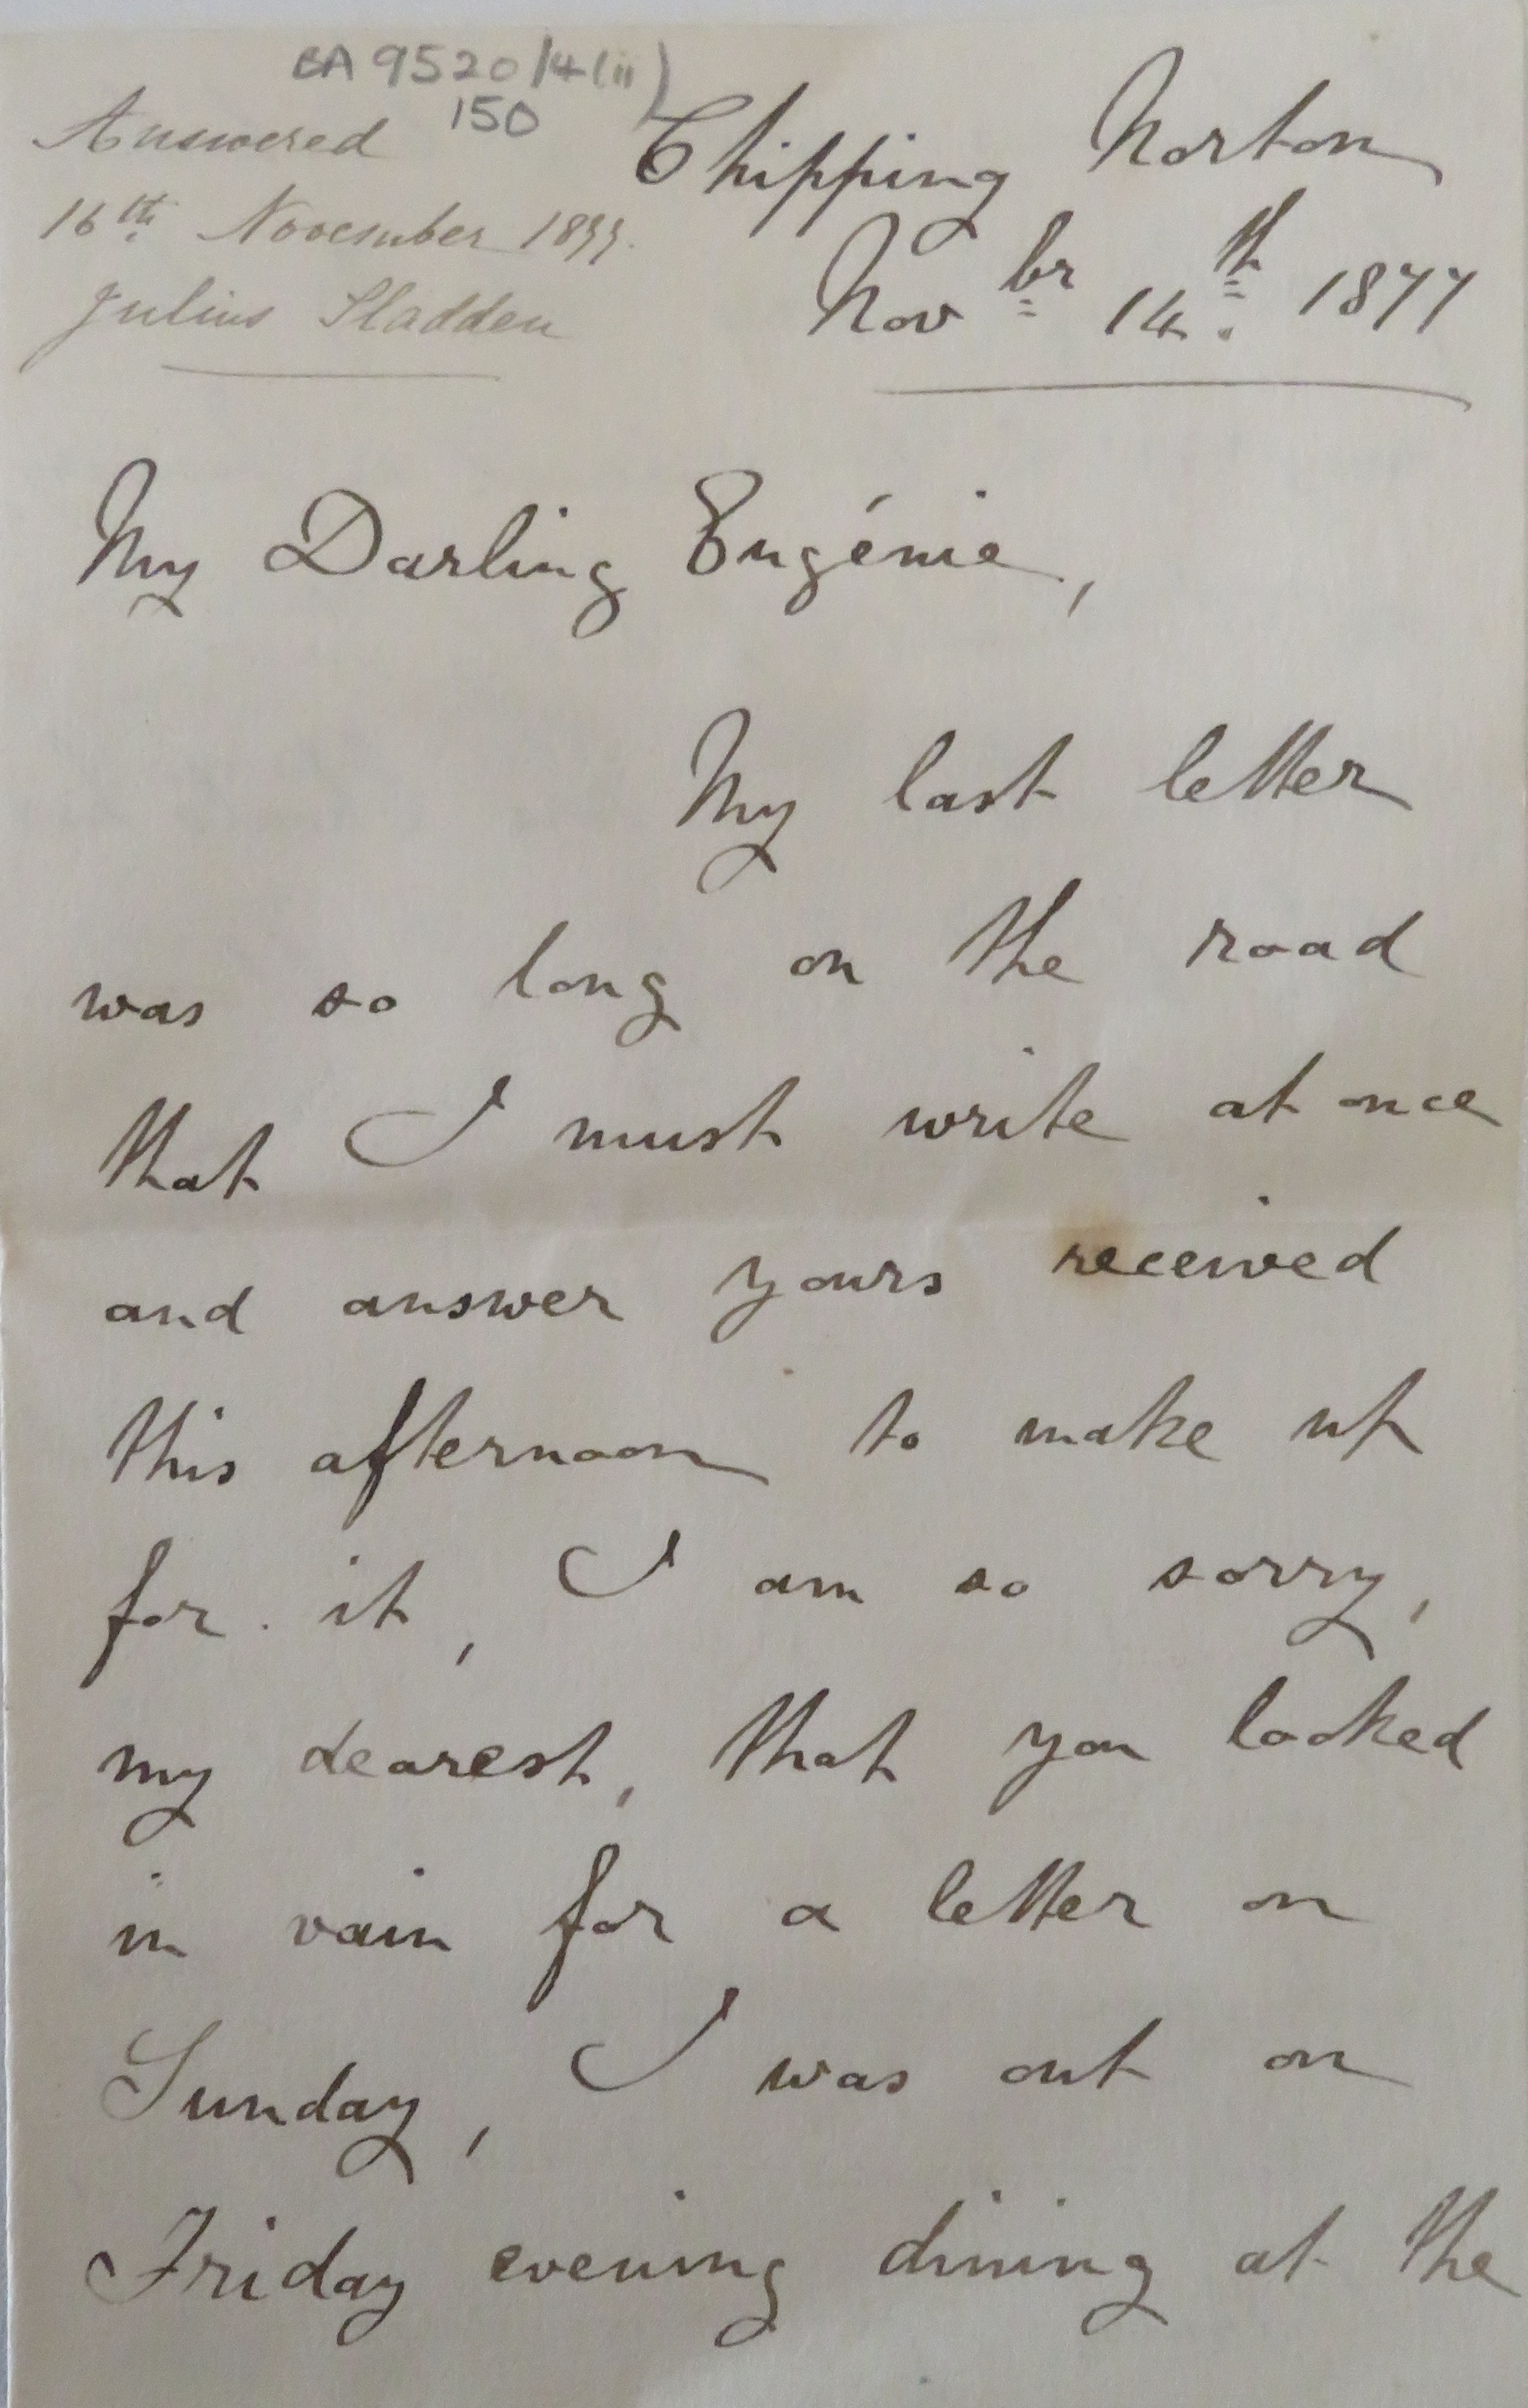 BA 9520/4(ii)
150
Answered
16th November 1877.
Julius Sladden
Chipping Norton
Novbr 14th. 1877
My Darling Eugénie,
My last letter
was so long on the road
that I must write at once
and answer yours received
this afternoon to make up
for it, I am so sorry,
my dearest, that you looked
in vain for a letter on
Sunday, I was out on
Friday evening dining at the